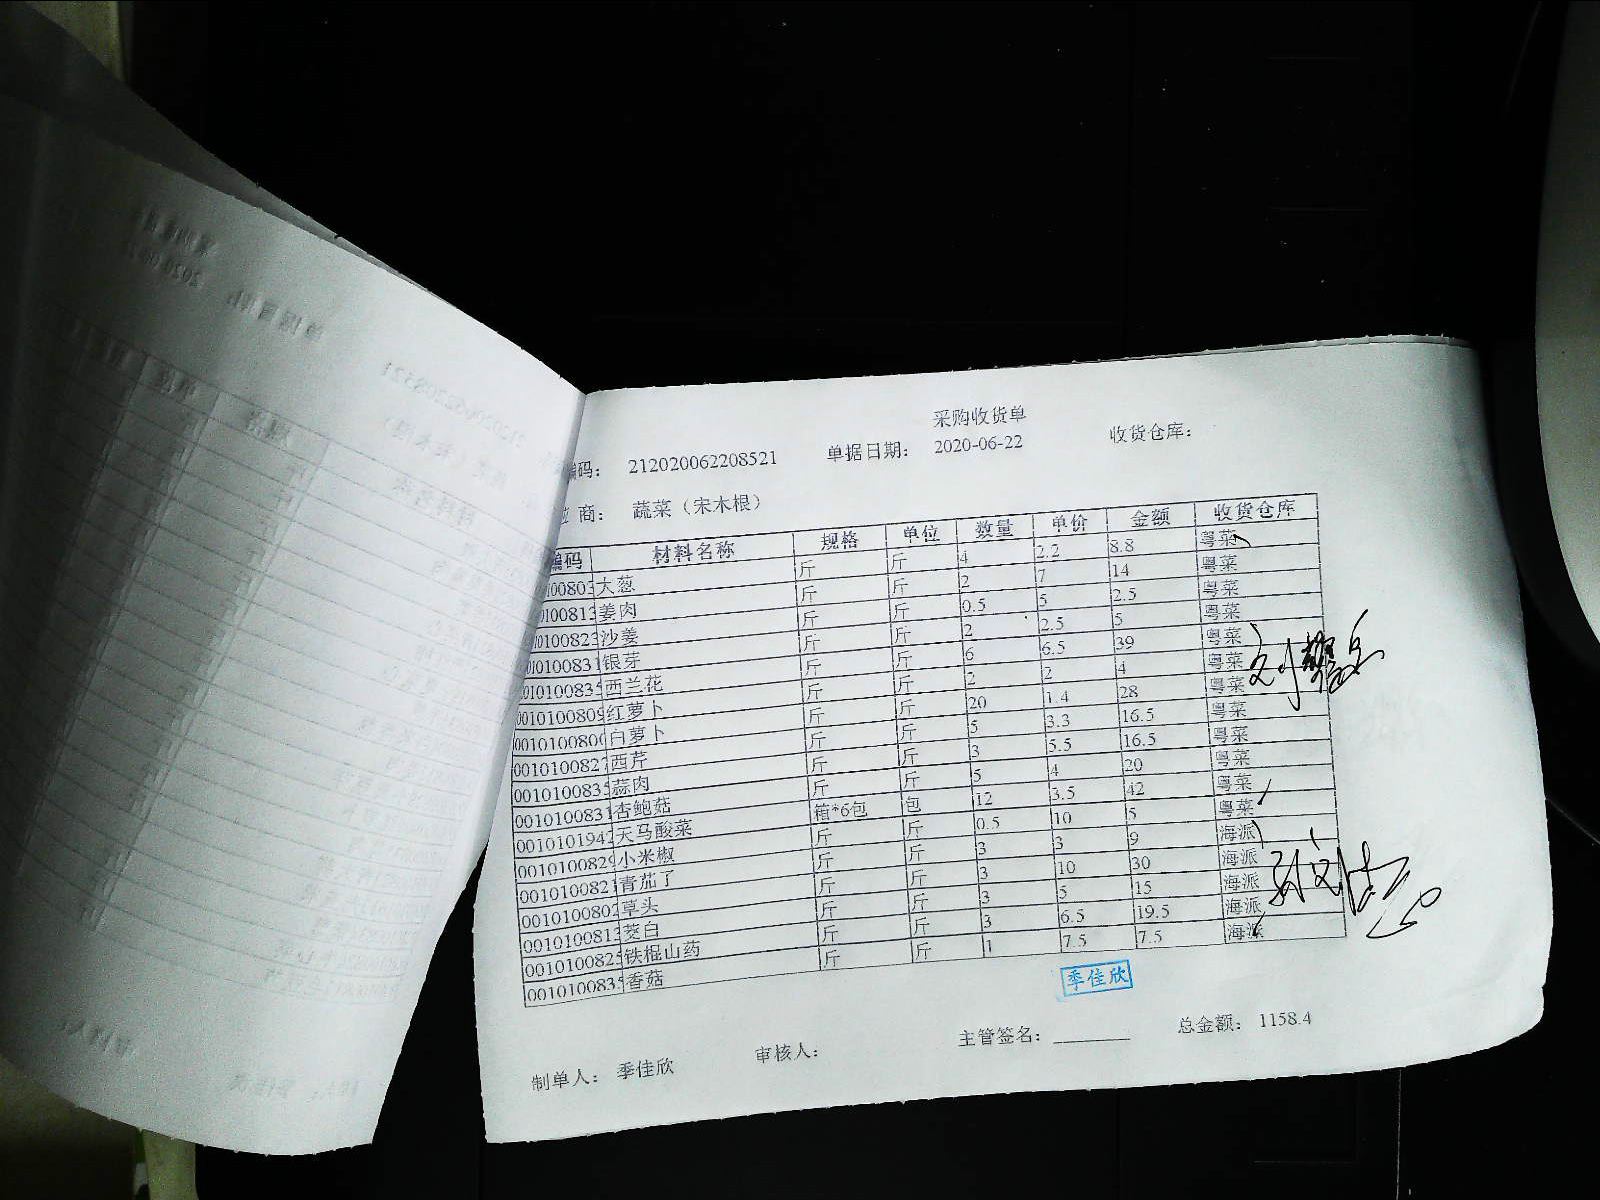 采购收货单
编码： 212020062208521 单据日期： 2020-06-22 收货仓库：
应 商： 蔬菜（宋木根）
编码 材料名称 规格 单位 数量 单价 金额 收货仓库
0100803 大葱 斤 斤 4 2.2 8.8 粤菜
0100813 姜肉 斤 斤 2 7 14 粤菜
0100823 沙姜 斤 斤 0.5 5 2.5 粤菜
0100831 银芽 斤 斤 2 2.5 5 粤菜
010100835 西兰花 斤 斤 6 6.5 39 粤菜
0010100809 红萝卜 斤 斤 2 2 4 粤菜
001010080 白萝卜 斤 斤 20 1.4 28 粤菜
0010100827 西芹 斤 斤 5 3.3 16.5 粤菜
0010100835 蒜肉 斤 斤 3 5.5 16.5 粤菜
0010100831 杏鲍菇 斤 斤 5 4 20 粤菜
0010101942 天马酸菜 箱*6包 包 12 3.5 42 粤菜
0010100829 小米椒 斤 斤 0.5 10 5 粤菜
0010100821 青茄了 斤 斤 3 3 9 海派
0010100802 草头 斤 斤 3 10 30 海派
0010100813 茭白 斤 斤 3 5 15 海派
0010100825 铁棍山药 斤 斤 3 6.5 19.5 海派
0010100835 香菇 斤 斤 1 7.5 7.5 海派
季佳欣
制单人： 季佳欣 审核人： 主管签名： 总金额： 1158.4